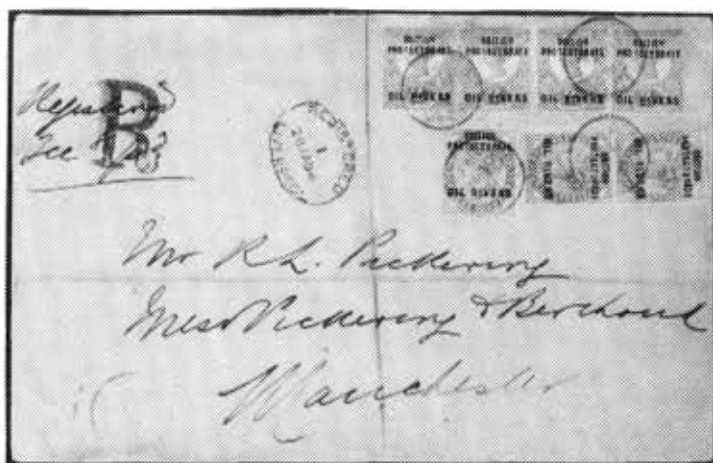 BRITISH PROTECTORATE OIL RIVERS
BRITISH PROTECTORATE OIL RIVERS
BRITISH PROTECTORATE OIL RIVERS
BRITISH PROTECTORATE OIL RIVERS
BRITISH PROTECTORATE OIL RIVERS
BRITISH PROTECTORATE OIL RIVERS
BRITISH PROTECTORATE OIL RIVERS
Registered
R
Fee
REGISTERED
Mr R. L. Pickering
Messrs Pickering & Berthoud
Manchester